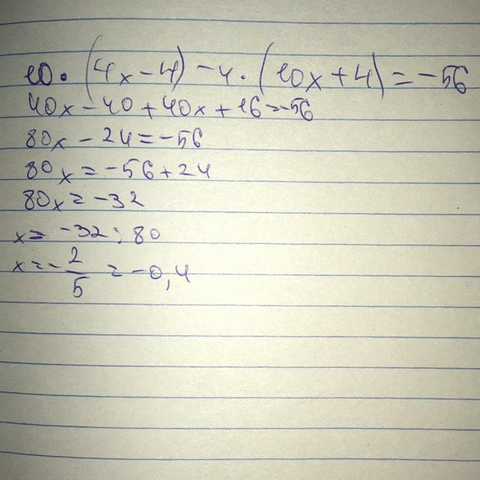 10 · (4x - 4) - 4 · (10x + 4) = -56
40x - 40 + 40x + 16 = -56
80x - 24 = -56
80x = -56 + 24
80x = -32
x = -32 : 80
x = -2/5 = -0,4